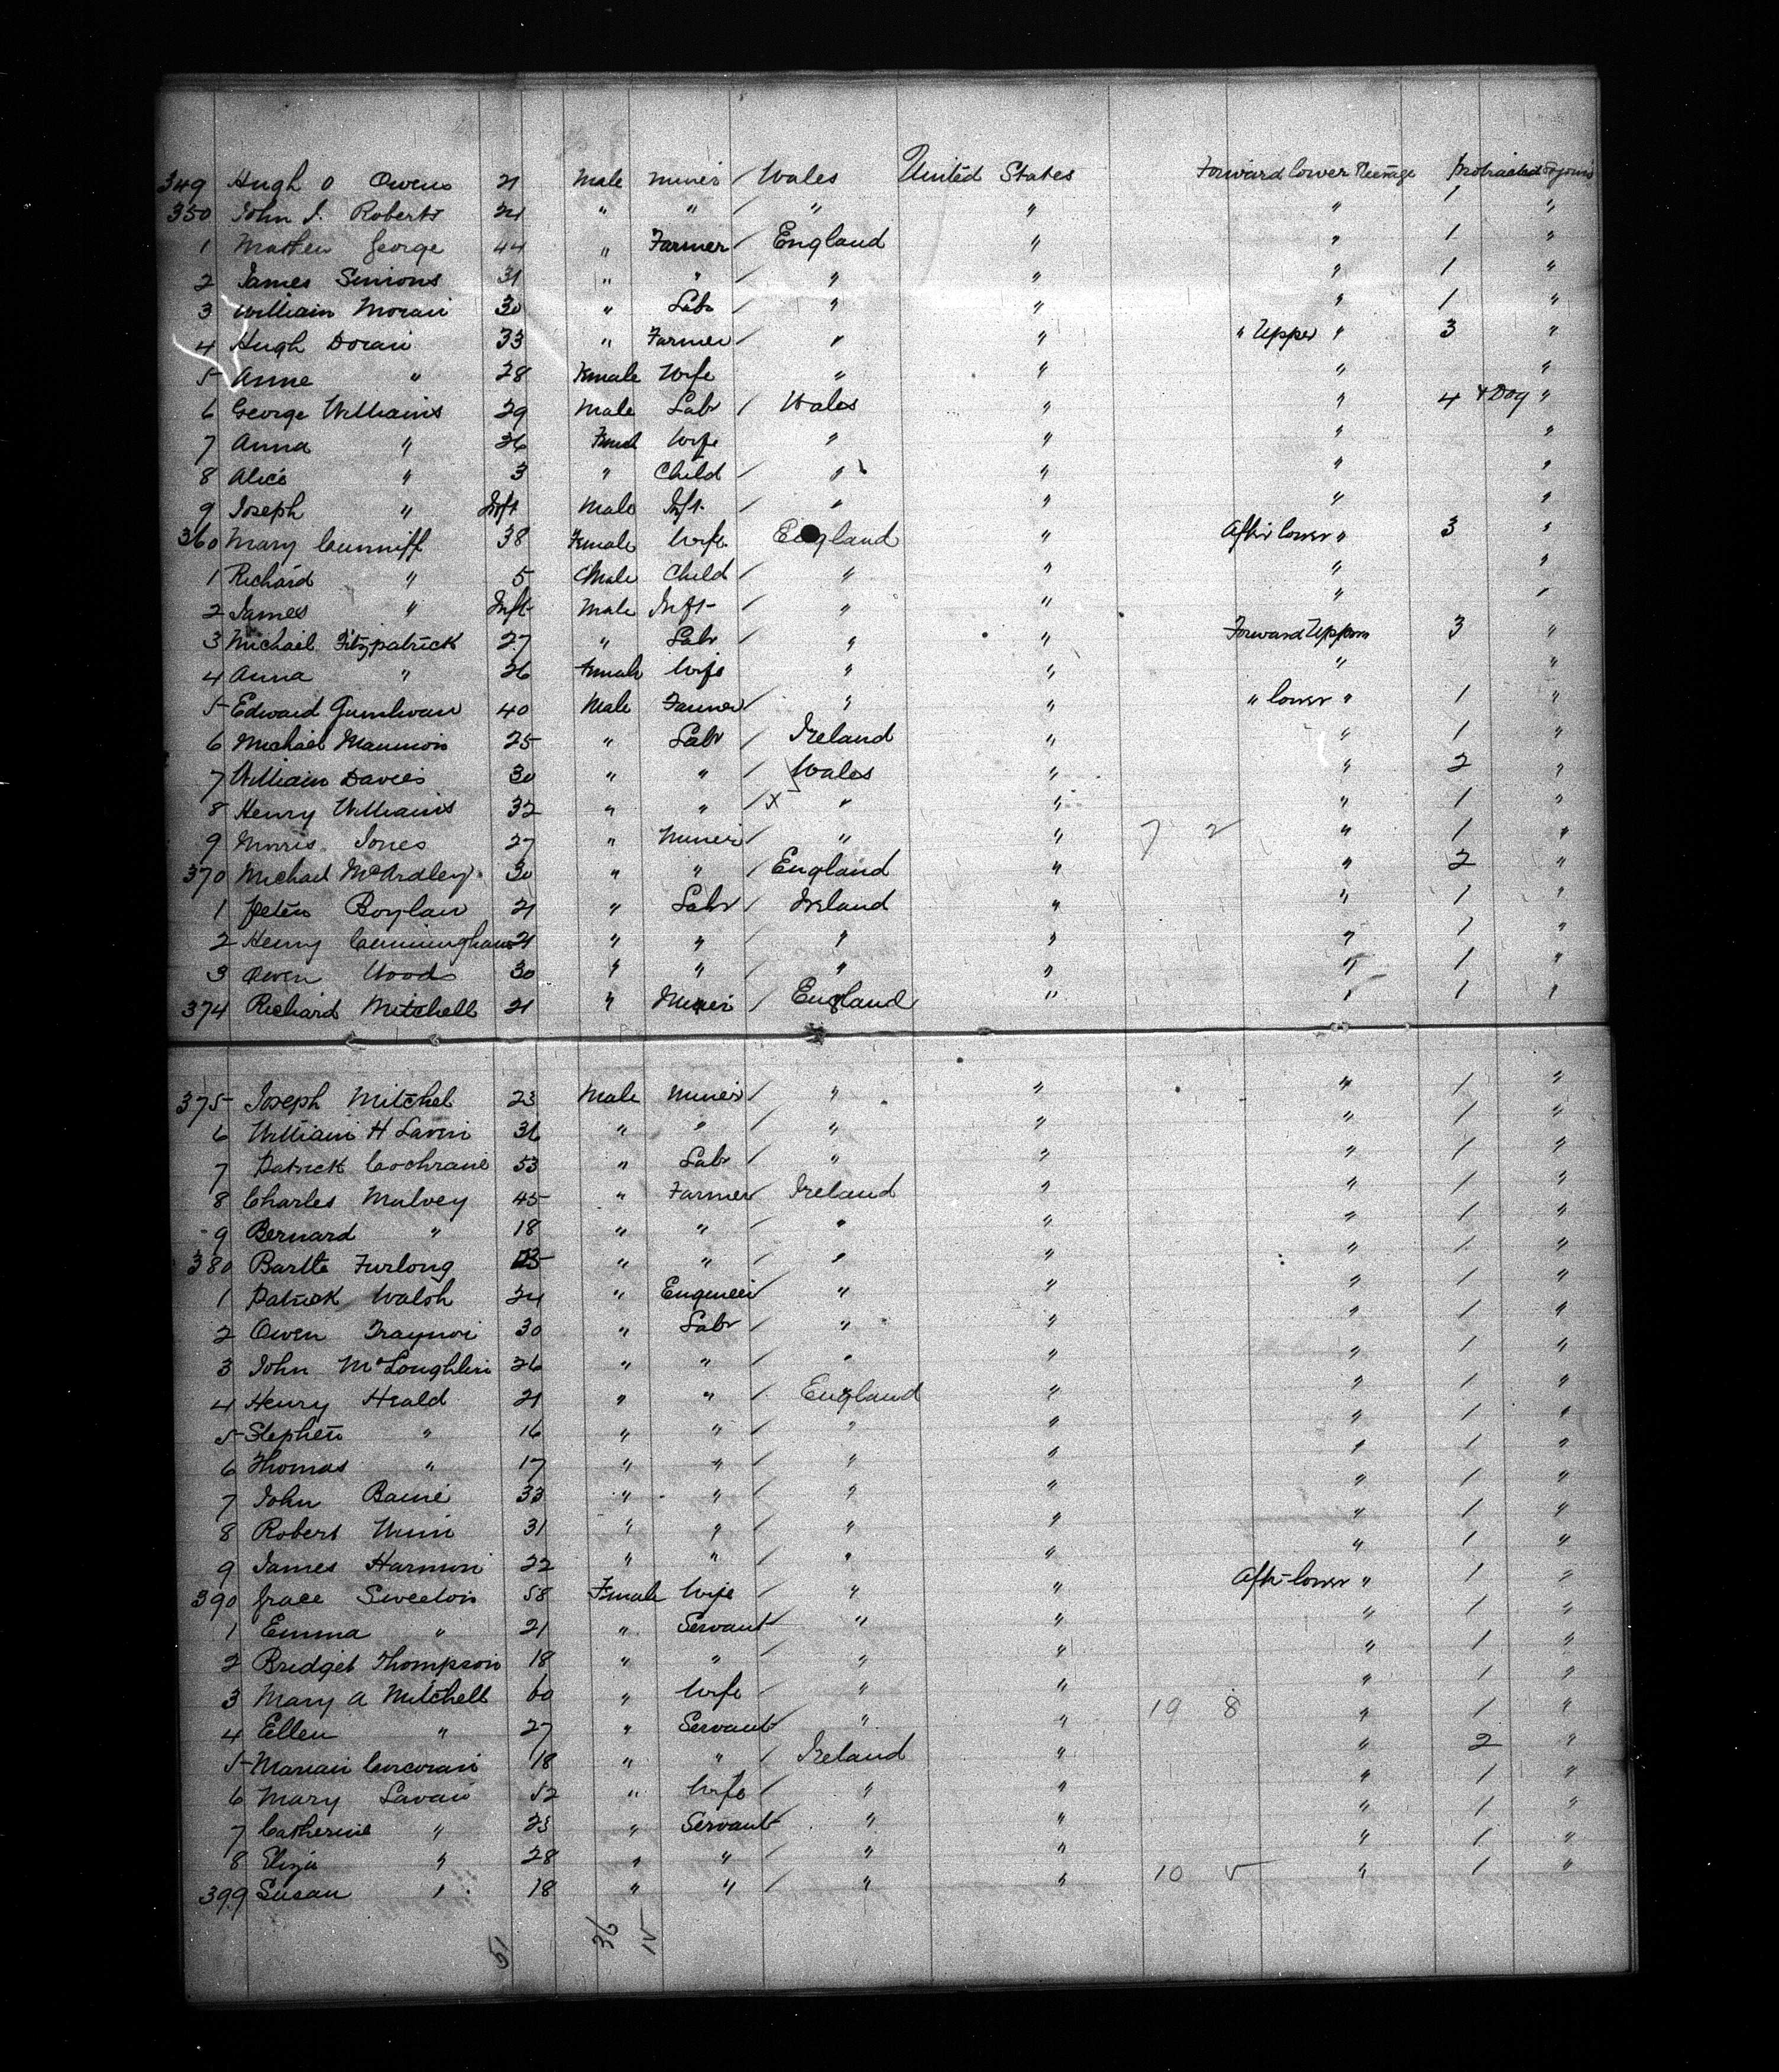 349 Hugh O Owens 21 Male Miner / Wales United States Forward lower Steerage 1 Protracted Sojourn
350 John J. Roberts 24 " " / " " " 1 "
1 Mathew George 44 " Farmer / England " " 1 "
2 James Simons 31 " " / " " " 1 "
3 William Moran 30 " Labr / " " " 1 "
4 Hugh Doran 33 " Farmer / " " " Upper " 3 "
5 Anne " 28 Female Wife " " " "
6 George Williams 29 Male Labr / Wales " " 4 & Dog "
7 Anna " 36 Femal Wife " " " "
8 Alice " 3 " Child / " " " "
9 Joseph " Inft Male Inft. / " " " "
360 Mary Cunniff 38 Female Wife England " After lower " 3 "
1 Richard " 5 Male Child / " " " "
2 James " Inft Male Inft- / " " " "
3 Michael Fitzpatrick 27 " Labr / " " Forward Upper " 3 "
4 Anna " 26 Female Wife " " " "
5 Edward 40 Male Farmer / " " " lower " 1 "
6 Michael 25 " Labr / Ireland " " 1 "
7 William Davies 30 " " / Wales " " 2 "
8 Henry Williams 32 " " / x " " " 1 "
9 Morris Jones 27 " Miner / " " 7 2 " 1 "
370 Michael McArdley 30 " " / England " " 2 "
1 Peter Boylan 21 " Labr / Ireland " " 1 "
2 Henry Cunningham 21 " " / " " " 1 "
3 Owen Woods 30 " " / " " " 1 "
374 Richard Mitchell 21 " Miner / England " " 1 "
375 Joseph Mitchel 23 Male Miner / " " " 1 "
6 William H Lavin 36 " " / " " " 1 "
7 Patrick Cochrane 53 " Labr / " " " 1 "
8 Charles Mulvey 45 " Farmer / Ireland " " 1 "
9 Bernard " 18 " " / " " " 1 "
380 Bartle Furlong " " / " " " 1 "
1 Patrick Walsh 24 " Engineer / " " " 1 "
2 Owen Traynor 30 " Labr / " " " 1 "
3 John McLoughlin 26 " " / " " " 1 "
4 Henry Heald 21 " " / England " " 1 "
5 Stephen " 16 " " / " " " 1 "
6 Thomas " 17 " " / " " " 1 "
7 John 33 " " / " " " 1 "
8 Robert 31 " " / " " " 1 "
9 James Harmon 22 " " / " " " 1 "
390 Grace Sweeton 58 Female Wife / " " Aft-lower " 1 "
1 Emma " 21 " Servant / " " " 1 "
2 Bridget Thompson 18 " " / " " " 1 "
3 Mary A Mitchell 60 " Wife / " " 19 8 " 1 "
4 Ellen " 27 " Servant / " " " 1 "
5 Corcoran 18 " " / Ireland " " 2 "
6 Mary Lavan 52 " Wife / " " " 1 "
7 Catherine " 23 " Servant / " " " 1 "
8 Eliza " 28 " " / " " " 1 "
399 Susan " 18 " " / " " 10 5 " 1 "
51 36 15